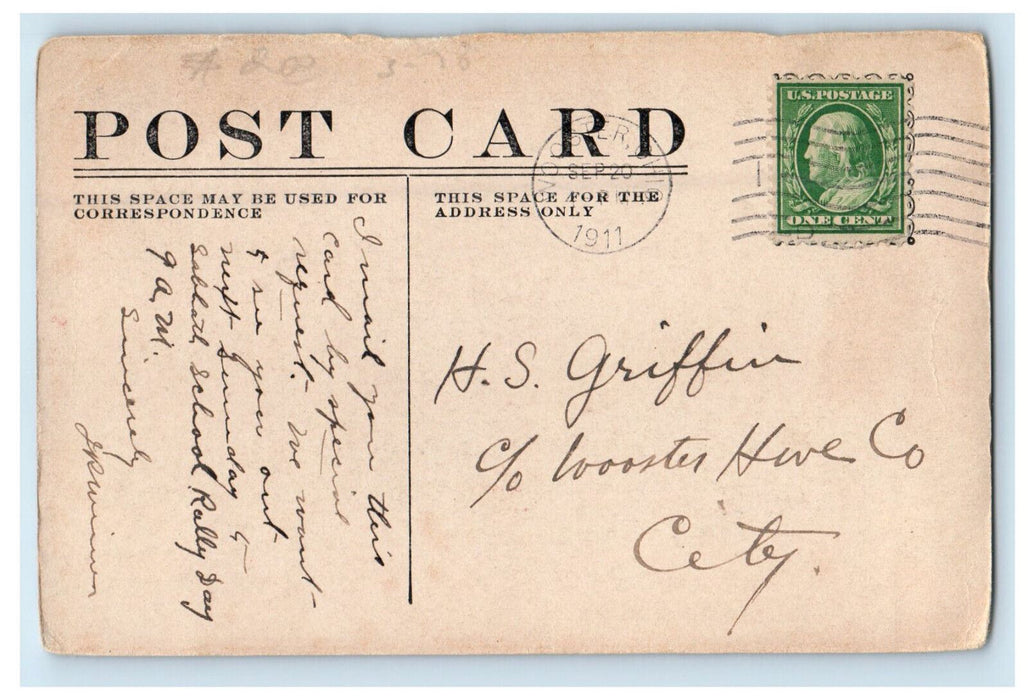 # 20 3-70
POST CARD
THIS SPACE MAY BE USED FOR
CORRESPONDENCE
THIS SPACE FOR THE
ADDRESS ONLY
WOOSTER,
SEP 20
1911
U.S. POSTAGE
ONE CENT
I mail you this
card by special
request. We want
to see you out
next Sunday to
Sabbath School Rally Day
9 A.M.
Sincerely
H. S. Griffin
c/o Wooster Hwe Co
City.